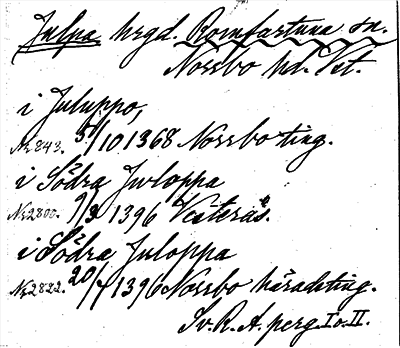 Julpa hrgd. Romfartuna sn.
Norrbo hd. Vst.
i Juluppo,
Nr 843. 5/10 1368 Norrbo ting.
i Södra Juloppa
Nr 2800. 9/3 1396 Västerås.
i Södra Juloppa
Nr 2822. 20/7 1396 Norrbo häradsting.
Sv. R. A. perg. I o. II.